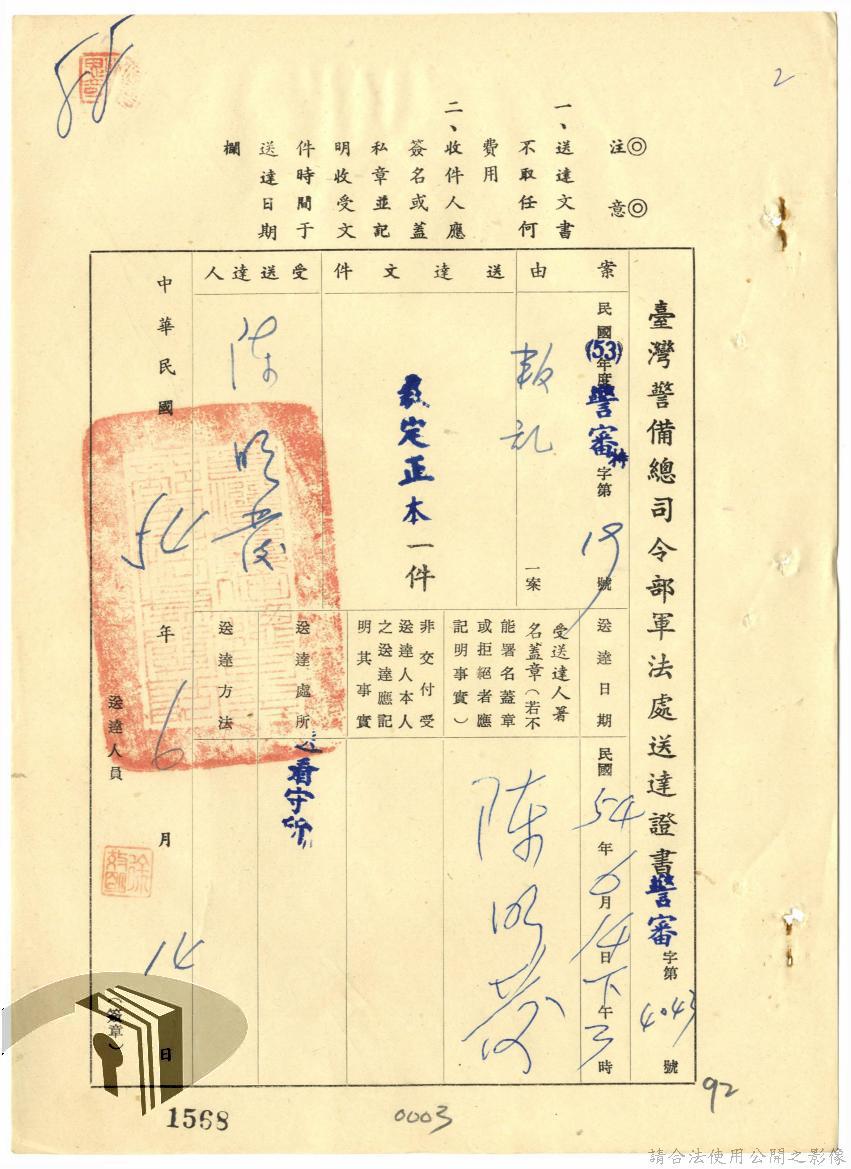 2
◎注意◎
一、送達文書
不取任何
費用
二、收件人應
簽名或蓋
私章並記
明收受文
件時間于
送達日期
欄
臺灣警備總司令部軍法處送達證書警審字第4043號
案由
民國(53)年度警審特字第19號
叛乱
一案
送達文件
裁定正本一件
受送達人
陳明發
送達日期
民國54年6月14日下午3時
受送達人署
名蓋章(若不
能署名蓋章
或拒絕者應
記明事實)
陳明發
非交付受
送達人本人
之送達應記
明其事實
送達處所
看守所
送達方法
中華民國54年6月14日
送達人員
(簽章)
92
1568
0003
請合法使用公開之影像